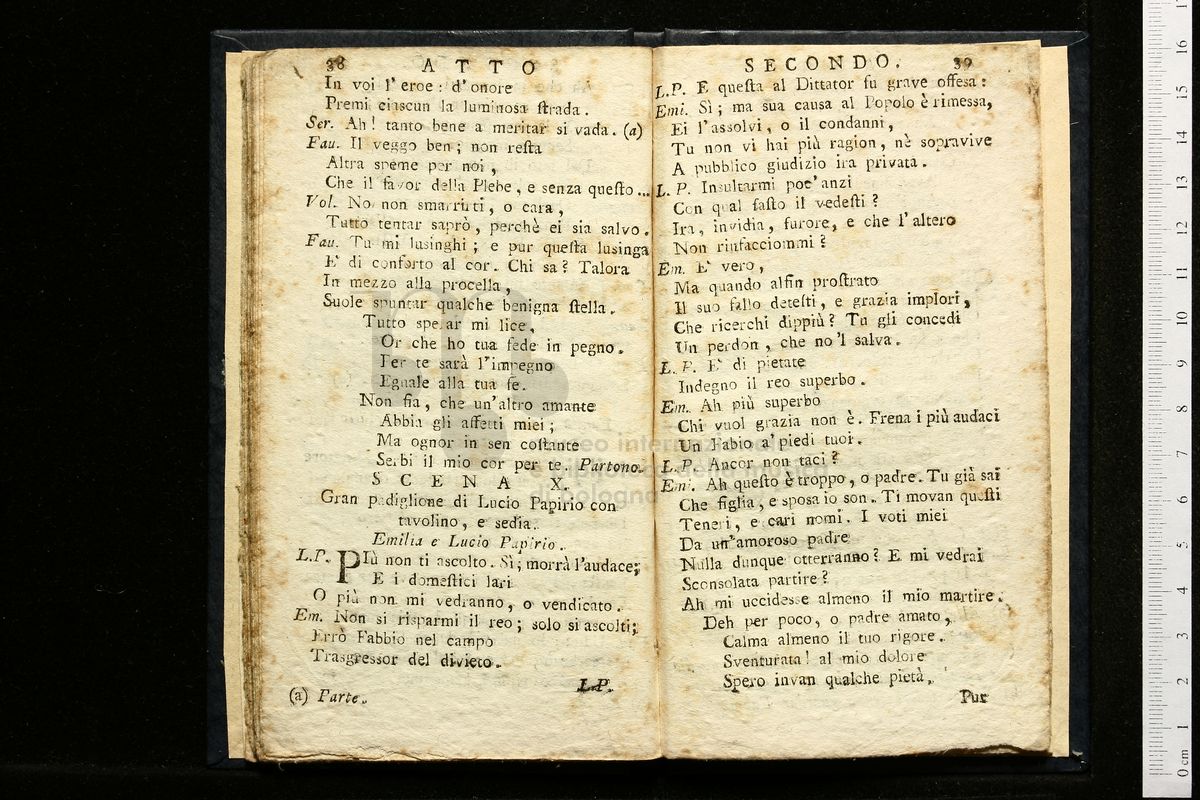 38 ATTO
In voi l'eroe: d'onore
Premi ciascun la luminosa ſtrada.
Ser. Ah! tanto bene a meritar si vada. (a)
Fau. Il veggo ben; non reſta
Altra speme per noi,
Che il favor della Plebe, e senza queſto ...
Vol. No non smarrirti, o cara,
Tutto tentar saprò, perchè ei sia salvo.
Fau. Tu mi lusinghi; e pur queſta lusinga
E' di conforto al cor. Chi sa? Talora
In mezzo alla procella,
Suole spuntar qualche benigna ſtella.
Tutto sperar mi lice,
Or che ho tua fede in pegno.
Per te sarà l'impegno
Eguale alla tua fe.
Non fia, che un'altro amante
Abbia gli affetti miei;
Ma ognor in sen coſtante
Serbi il mio cor per te. Partono.
SCENA X.
Gran padiglione di Lucio Papirio con
tavolino, e sedia.
Emilia e Lucio Papirio.
L.P. PIù non ti ascolto. Sì; morrà l'audace;
E i domeſtici lari
O più non mi vedranno, o vendicato.
Em. Non si risparmi il reo; solo si ascolti;
Errò Fabbio nel campo
Trasgressor del divieto.
L.P.
(a) Parte.
SECONDO. 39
L.P. E queſta al Dittator fu grave offesa:
Emi. Sì; ma sua causa al Popolo è rimessa,
Ei l'assolvi, o il condanni,
Tu non vi hai più ragion, nè sopravive
A pubblico giudizio ira privata.
L. P. Insultarmi poc'anzi
Con qual faſto il vedeſti?
Ira, invidia, furore, e che l'altero
Non rinfacciommi?
Em. E' vero,
Ma quando alfin proſtrato
Il suo fallo deteſti, e grazia implori,
Che ricerchi dippiù? Tu gli concedi
Un perdon, che no'l salva.
L. P. E' di pietate
Indegno il reo superbo.
Em. Ah più superbo
Chi vuol grazia non è. Frena i più audaci
Un Fabio a' piedi tuoi.
L. P. Ancor non taci?
Emi. Ah queſto è troppo, o padre. Tu già sai
Che figlia, e sposa io son. Ti movan queſti
Teneri, e cari nomi. I voti miei
Da un'amoroso padre
Nulla dunque otterranno? E mi vedrai
Sconsolata partire?
Ah mi uccidesse almeno il mio martire.
Deh per poco, o padre amato,
Calma almeno il tuo rigore.
Sventurata! al mio dolore
Spero invan qualche pietà.
Pur